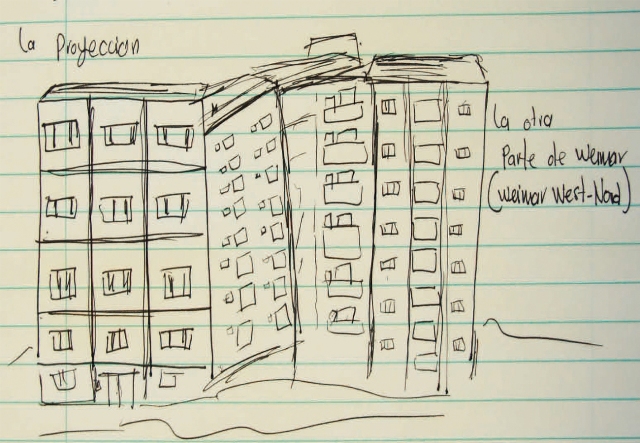 La Proyeccion
La otra
Parte de Weimar
(Weimar West-Nord)